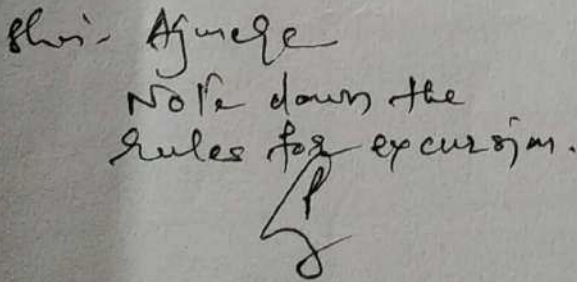 Shri. 
Note down the
rules for excursion.